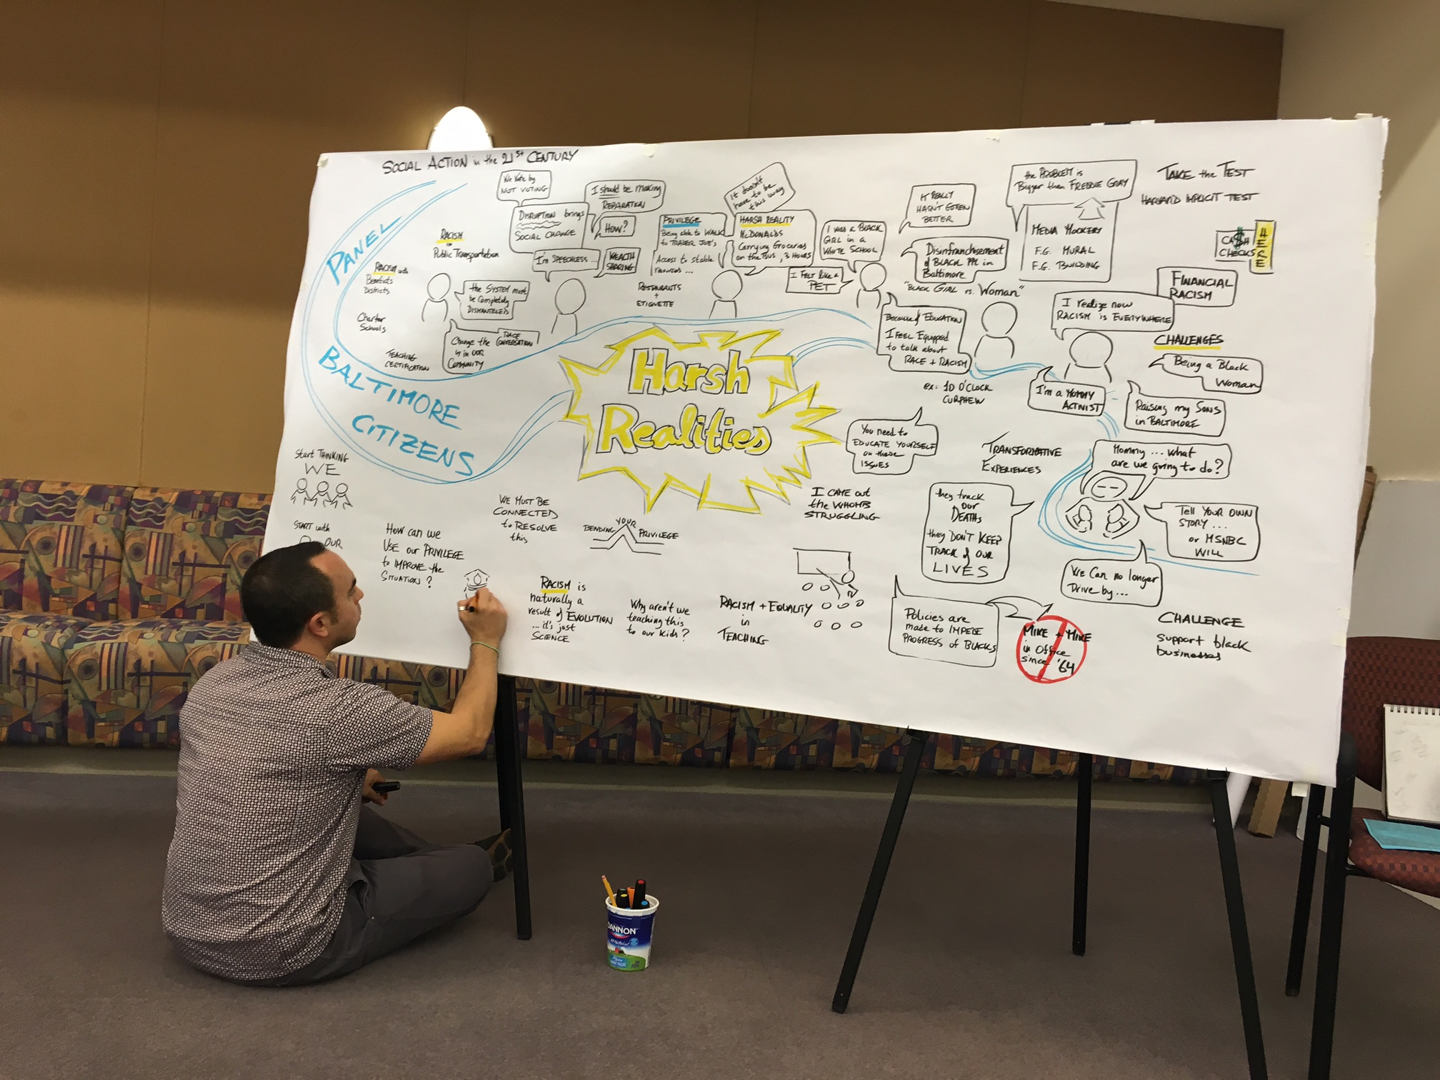 SOCIAL ACTION in the 21st CENTURY
PANEL
BALTIMORE
CITIZENS
Harsh
Realities
No Vote by
NOT VOTING
DISRUPTION brings
SOCIAL CHANGE
I should be making
REPARATION
HOW?
I'm SPEECHLESS...
WEALTH
SHARING
RACISM
Public Transportation
RACISM with
Districts
Charter
Schools
TEACHING
CERTIFICATION
the SYSTEM must
be Completely
DISMANTELED
Change the RACE CONVERSATION
is in OUR
Community
PRIVILEGE
Being able to WALK
to TRADER JOE'S
Access to stable
RESTAURANTS
+
ETIQUETTE
It doesn't
have to be
this way
HARSH REALITY
McDONALDS
Carrying Groceries
on the BUS, 2 HOURS
I WAS A BLACK
GIRL in a
WHITE SCHOOL
I FELT LIKE A
PET
IT REALLY
HASN'T GOTTEN
BETTER
Disinfranchisement
of BLACK PPL in
Baltimore
"BLACK GIRL vs. Woman"
Because of EDUCATION
I FEEL Equipped
to talk about
RACE + RACISM
ex: 10 O'CLOCK
CURPHEW
the PROBLEM is
Bigger than FREDDIE GRAY
MEDIA MOCKERY
F.G. MURAL
F.G. BUILDING
TAKE the TEST
HARVARD IMPLICIT TEST
CA$H
CHECKS
HERE
FINANCIAL
RACISM
I realize now
RACISM is EVERYWHERE
CHALLENGES
Being a Black
Woman
Raising my SONS
in BALTIMORE
I'm a MOMMY
ACTIVIST
You need to
EDUCATE YOURSELF
on these
ISSUES
TRANSFORMATIVE
EXPERIENCES
Mommy... what
are we going to do?
TELL YOUR OWN
STORY...
or MSNBC
WILL
We CAN no longer
Drive by...
they track
our
DEATHs
they DON'T KEEP
TRACK of OUR
LIVES
I CAME out
the WHOMB
STRUGGLING
Start THINKING
WE
START with
OUR
How can we
USE our PRIVILEGE
to IMPROVE the
SITUATION?
WE MUST BE
CONNECTED
to RESOLVE
this
BENDING YOUR PRIVILEGE
RACISM is
naturally a
result of EVOLUTION
...it's just
SCIENCE
Why aren't we
teaching this
to our kids?
RACISM + EQUALITY
in
TEACHING
Policies are
made to IMPEDE
PROGRESS of BLACKS
MIKE + MIKE
in Office
since '64
CHALLENGE
support black
businesses
DANNON